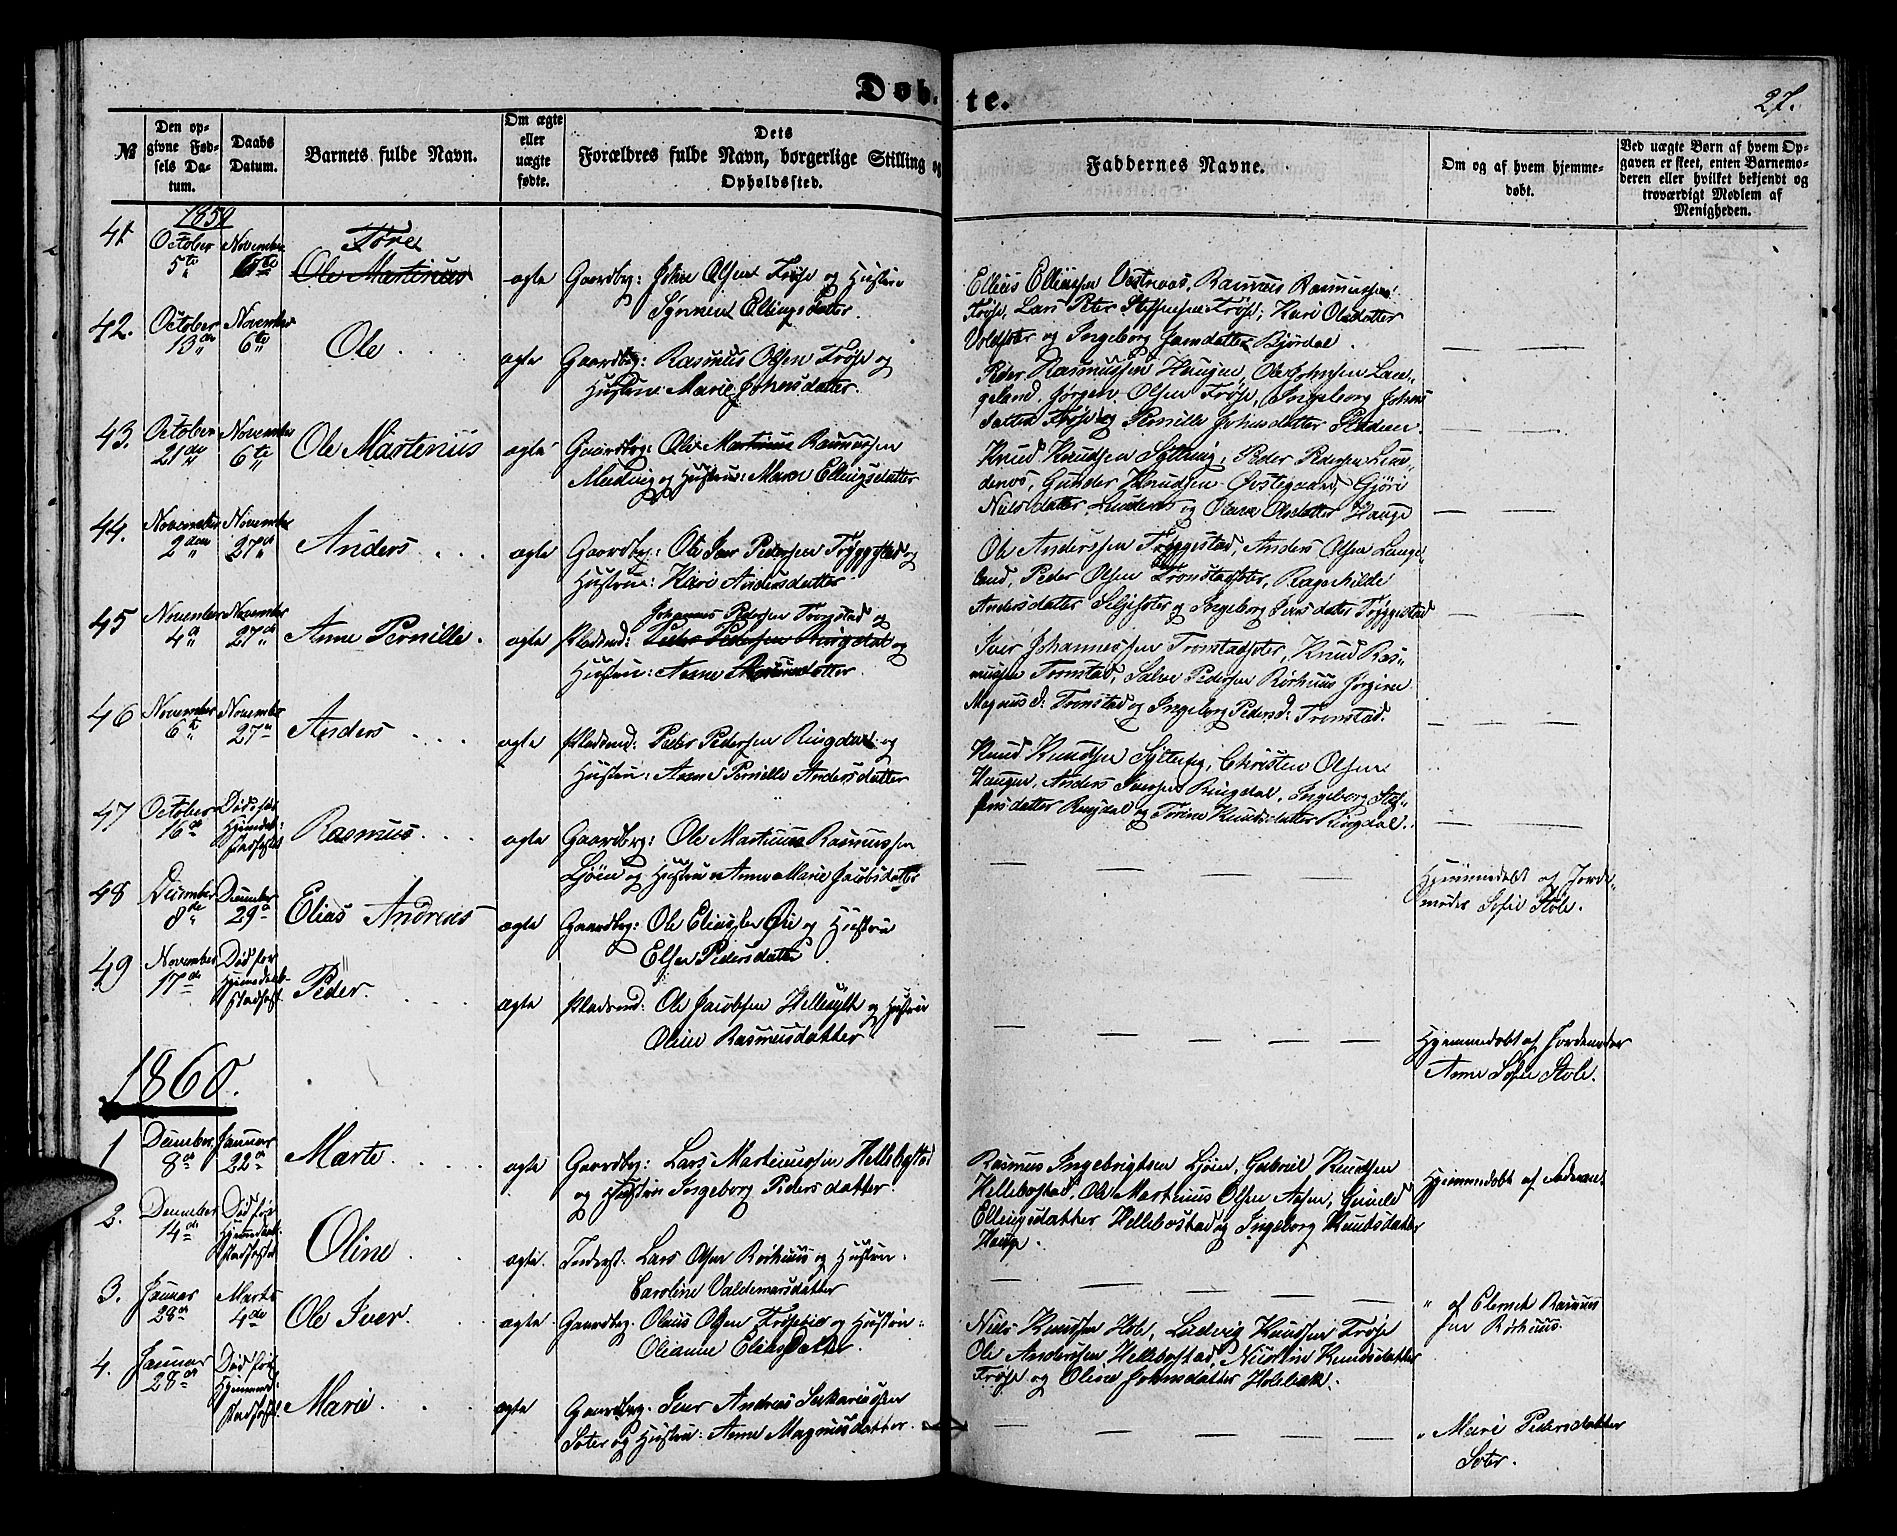 Døbte.
27.
№
Den opgivne Fødsels Datum.
Daabs Datum.
Barnets fulde Navn.
Om ægte eller uægte fødte.
Dets Forældres fulde Navn, borgerlige Stilling og Opholdssted.
Faddernes Navne.
Om og af hvem hjemmedøbt.
Ved uægte Børn af hvem Opgaven er skeet, enten Barnemoderen eller hvilket bekjendt og troværdigt Medlem af Menigheden.
1859
41 October 5te November 6te Tøre
Ole Martinus
ægte Gaardbg: John Olsen Frøse og Hustru
Ellingsdatter.
Rasmus Rasmussen
Frøse, Lars Peter Steffensen Frøse, Kari Olsdatter
og Ingeborg Jonsdatter Bjørdal.
42. October 13de November 6te Ole
ægte Gaardbg: Rasmus Olsen Frøse og
Hustru Marie Johnsdatter.
Peder Rasmussen Haugen, Ole Johnsen Lan-
geland, Jørgen Olsen Frøse, Ingeborg Johns
datter Frøse og Pernille Johnsdatter
43. October 21de November 6te Ole Martinus
ægte Gaardbg: Ole Martinus Rasmussen
og Hustru: Maren Ellingsdatter
Knud Knudsen Sylling, Peder Pedersen
Gunder Knudsen
Nielsdatter og Olsdatter Hauge
44. November 2den November 27de Anders
ægte Gaardbg: Ole Iver Pedersen Tryggestad og
Hustru: Kari Andersdatter
Ole Anderssen Tryggestad, Anders Olsen Lange-
land, Peder Olsen Tronstadsæter, Ragnhilde
Andersdatter og Ingeborg Tryggestad
45 November 4de November 27de Anne Pernille.
ægte Pladsmd: Johannes Pedersen Tronstad og
Peder Pedersen Ringdal og
Hustru: Anne
Iver Johannessen Tronstadsæter, Knud Ras-
mussen Tronstad, Pedersen Rørhuus
Magnusd: Tronstad og Ingeborg Pedersd: Tronstad.
46 November 6te November 27de Anders
ægte Pladsmd: Peder Pedersen Ringdal og
Hustru: Anne Pernille Andersdatter
Knud Knudsen Sylling, Christen Olsen
Haugen, Anders Iversen Ringdal, Ingeborg Stef-
fensdatter Ringdal og Knudsdatter Ringdal.
47 October 16de Død før Hjemmed: Stadfæstet Rasmus
ægte Gaardbg: Ole Martinus Rasmussen
Ljøen og Hustru Anne Marie Jacobsdatter
Hjemmedøbt af Jorde-
moder Sofie Stole.
48 December 8de December 29de Elias Andreas
ægte Gaardbg: Ole Eliassen Øie og Hustru
Elsen Pedersdatter
49 November 17de Død før Hjemmedaab Stadfæst Peder.
ægte Pladsmd: Ole Jacobsen Hellesylt og Hustru
Oline Rasmusdatter
Hjemmedøbt af Jordemoder
Anne Sofie Stole.
1860.
1 December 8de Januar 22de Marte
ægte Gaardbg: Lars Martinussen Hellebostad
og Hustru Ingeborg Pedersdatter.
Rasmus Ingebrigtsen Ljøen, Gabriel Knudsen
Hellebostad, Ole Martinus Olsen Aasen,
Ellingsdatter Hellebostad og Ingeborg Knudsdatter
Hauge.
Hjemmedøbt af Faderen.
2. December 14de Død før Hjemmedaab Stadfæstet Oline
ægte Inderst. Lars Olsen Rørhuus og Hustru
Caroline Valdemarsdatter
" af Clemet Rasmus
sen Rørhuus.
3. Januar 28de Marts 4de Ole Iver.
ægte Gaardbg. Olaus Olsen og Hustru:
Oliane Eliasdatter.
Niels Knudsen Hole, Ludvig Knudsen Frøse
Ole Anderssen Hellebostad, Knudsdatter
Frøse og Oline Johnsdatter Holebak.
4. Januar 28de Død før Hjemmed: Stadfæst Marie.
ægte Gaardbg. Iver Andreas Sakariassen
Sæter og Hustru: Anne Magnusdatter.
" Mari Pedersdatter
Sæter.